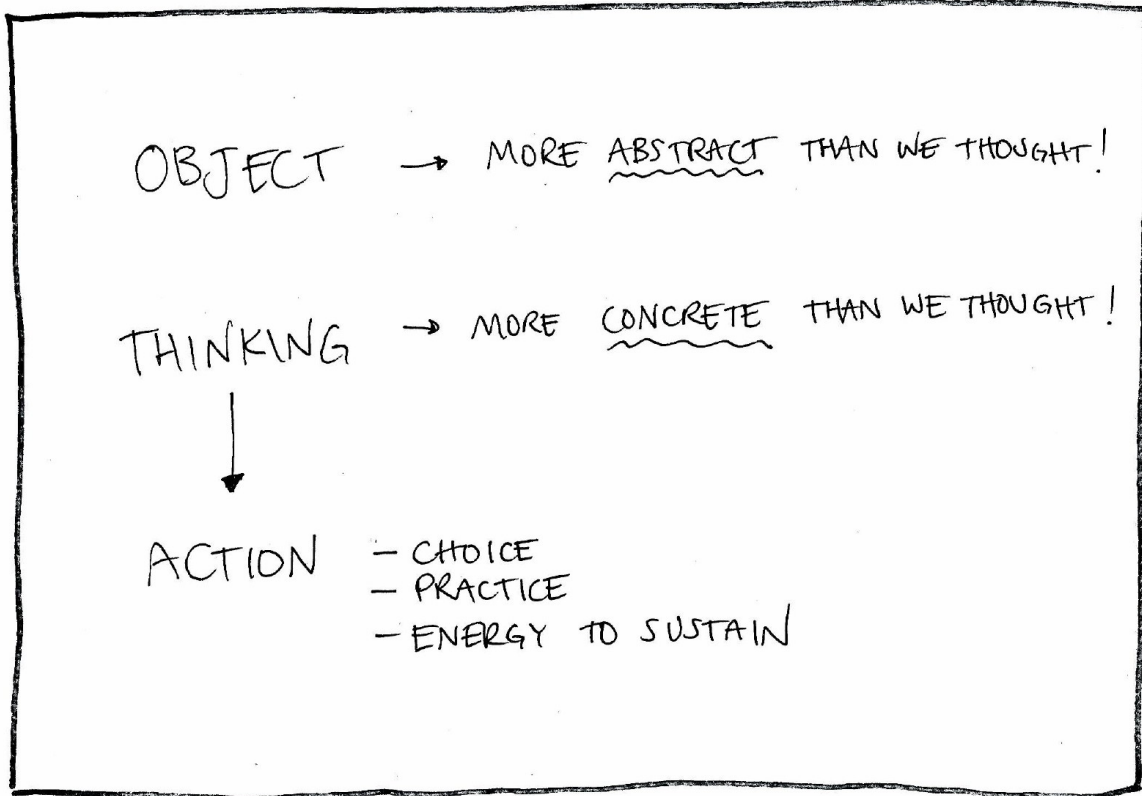 OBJECT → MORE ABSTRACT THAN WE THOUGHT!
THINKING → MORE CONCRETE THAN WE THOUGHT!
ACTION – CHOICE
– PRACTICE
– ENERGY TO SUSTAIN